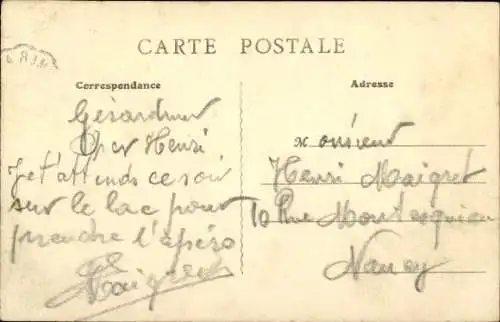 CARTE POSTALE
Correspondance
Gérardmer
Cher Henri
Je t'attends ce soir
sur le lac pour
prendre l'apéro
Maigret
Adresse
Monsieur
Henri Maigret
10 Rue Montesquieu
Nancy